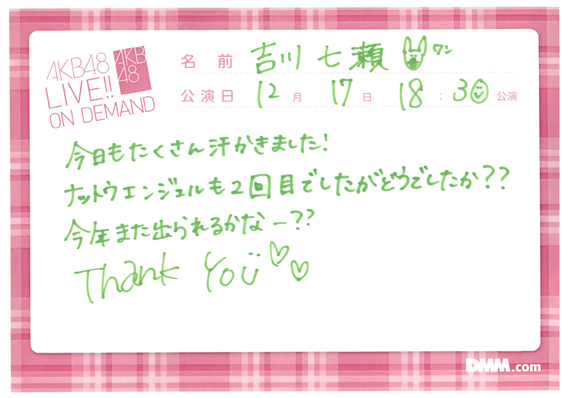 AKB48
LIVE!!
ON DEMAND
AKB
48
名前 吉川七瀬 ワン
公演日 12月 17日 18:30公演
今日もたくさん汗かきました!
ナットウエンジェルも2回目でしたがどうでしたか??
今年また出られるかなー??
Thank You
DMM.com